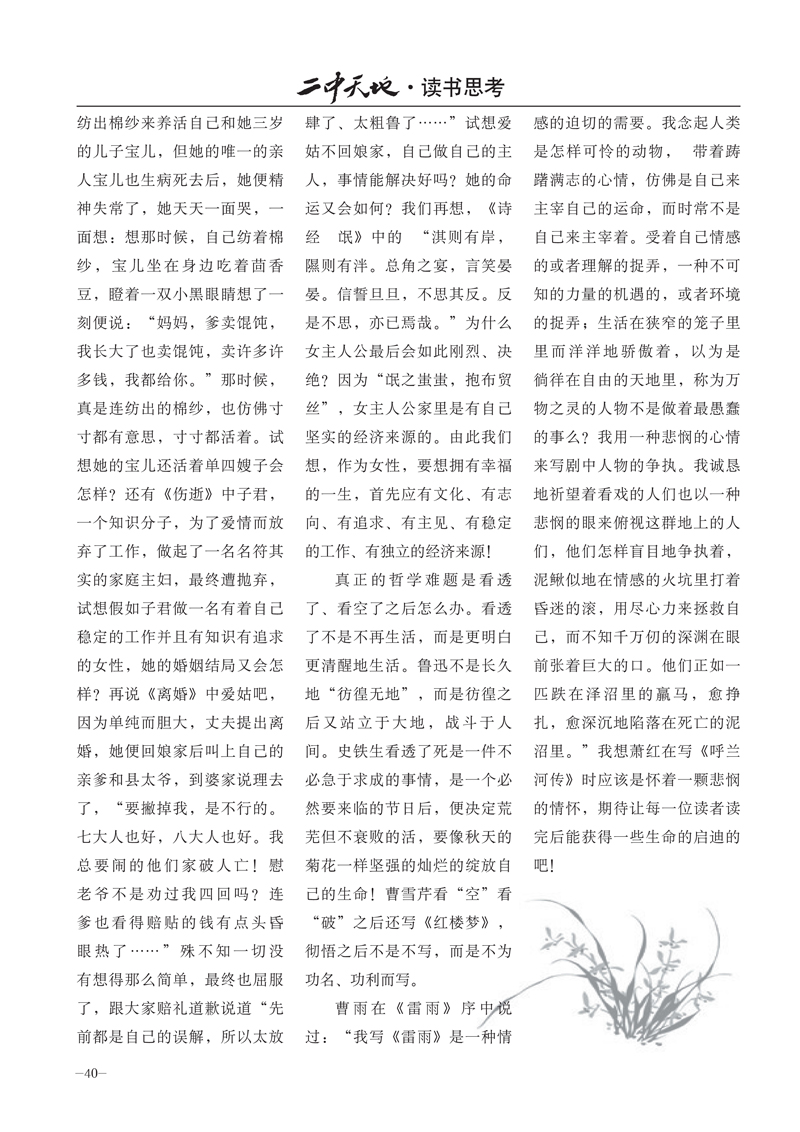 二中天地·读书思考
纺出棉纱来养活自己和她三岁
的儿子宝儿，但她的唯一的亲
人宝儿也生病死去后，她便精
神失常了，她天天一面哭，一
面想：想那时候，自己纺着棉
纱，宝儿坐在身边吃着茴香
豆，瞪着一双小黑眼睛想了一
刻便说：“妈妈，爹卖馄饨，
我长大了也卖馄饨，卖许多许
多钱，我都给你。”那时候，
真是连纺出的棉纱，也仿佛寸
寸都有意思，寸寸都活着。试
想她的宝儿还活着单四嫂子会
怎样？还有《伤逝》中子君，
一个知识分子，为了爱情而放
弃了工作，做起了一名名符其
实的家庭主妇，最终遭抛弃，
试想假如子君做一名有着自己
稳定的工作并且有知识有追求
的女性，她的婚姻结局又会怎
样？再说《离婚》中爱姑吧，
因为单纯而胆大，丈夫提出离
婚，她便回娘家后叫上自己的
亲爹和县太爷，到婆家说理去
了，“要撇掉我，是不行的。
七大人也好，八大人也好。我
总要闹的他们家破人亡！慰
老爷不是劝过我四回吗？连
爹也看得赔贴的钱有点头昏
眼热了……”殊不知一切没
有想得那么简单，最终也屈服
了，跟大家赔礼道歉说道“先
前都是自己的误解，所以太放
肆了、太粗鲁了……”试想爱
姑不回娘家，自己做自己的主
人，事情能解决好吗？她的命
运又会如何？我们再想，《诗
经 氓》中的 “淇则有岸，
隰则有泮。总角之宴，言笑晏
晏。信誓旦旦，不思其反。反
是不思，亦已焉哉。”为什么
女主人公最后会如此刚烈、决
绝？因为“氓之蚩蚩，抱布贸
丝”，女主人公家里是有自己
坚实的经济来源的。由此我们
想，作为女性，要想拥有幸福
的一生，首先应有文化、有志
向、有追求、有主见、有稳定
的工作、有独立的经济来源！
真正的哲学难题是看透
了、看空了之后怎么办。看透
了不是不再生活，而是更明白
更清醒地生活。鲁迅不是长久
地“彷徨无地”，而是彷徨之
后又站立于大地，战斗于人
间。史铁生看透了死是一件不
必急于求成的事情，是一个必
然要来临的节日后，便决定荒
芜但不衰败的活，要像秋天的
菊花一样坚强的灿烂的绽放自
己的生命！曹雪芹看“空”看
“破”之后还写《红楼梦》，
彻悟之后不是不写，而是不为
功名、功利而写。
曹雨在《雷雨》序中说
过：“我写《雷雨》是一种情
感的迫切的需要。我念起人类
是怎样可怜的动物， 带着踌
躇满志的心情，仿佛是自己来
主宰自己的运命，而时常不是
自己来主宰着。受着自己情感
的或者理解的捉弄，一种不可
知的力量的机遇的，或者环境
的捉弄；生活在狭窄的笼子里
里而洋洋地骄傲着，以为是
徜徉在自由的天地里，称为万
物之灵的人物不是做着最愚蠢
的事么？我用一种悲悯的心情
来写剧中人物的争执。我诚恳
地祈望着看戏的人们也以一种
悲悯的眼来俯视这群地上的人
们，他们怎样盲目地争执着，
泥鳅似地在情感的火坑里打着
昏迷的滚，用尽心力来拯救自
己，而不知千万仞的深渊在眼
前张着巨大的口。他们正如一
匹跌在泽沼里的羸马，愈挣
扎，愈深沉地陷落在死亡的泥
沼里。”我想萧红在写《呼兰
河传》时应该是怀着一颗悲悯
的情怀，期待让每一位读者读
完后能获得一些生命的启迪的
吧！
–40–